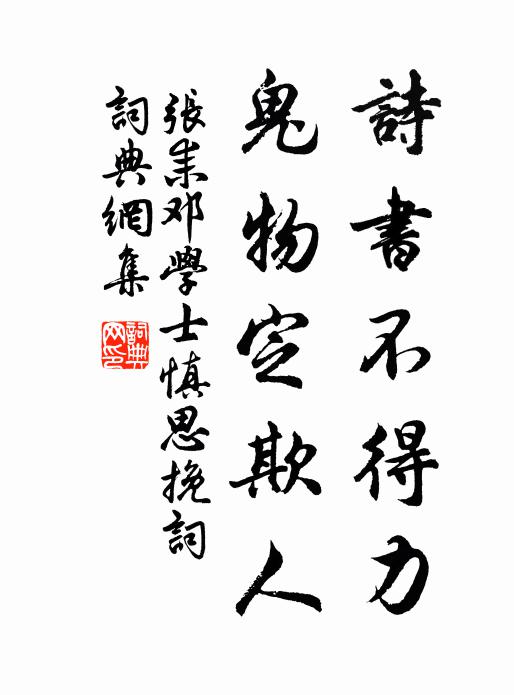 詩書不得力
鬼物定欺人
張耒邓學士慎思挽詞
詞典網集
詞典
网印